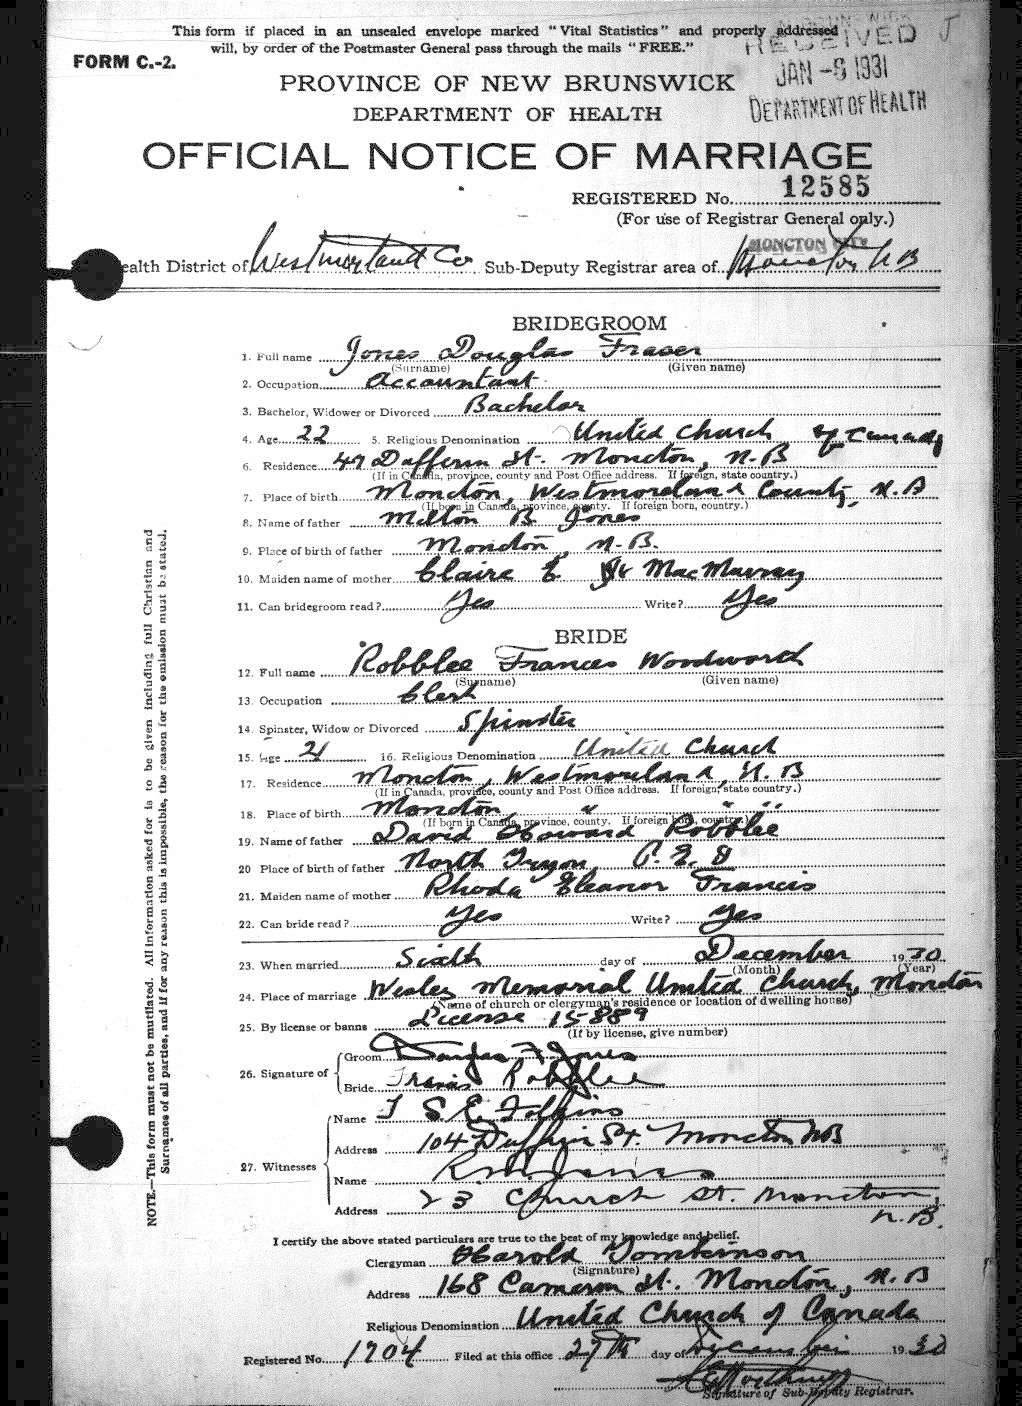 This form if placed in an unsealed envelope marked "Vital Statistics" and properly addressed
will, by order of the Postmaster General pass through the mails "FREE."
FORM C.-2.
RECEIVED
JAN -6 1931
DEPARTMENT OF HEALTH
PROVINCE OF NEW BRUNSWICK
DEPARTMENT OF HEALTH
OFFICIAL NOTICE OF MARRIAGE
REGISTERED No. 12585
(For use of Registrar General only.)
MONCTON CITY
ealth District of Westmorland Co Sub-Deputy Registrar area of Moncton N B
BRIDEGROOM
1. Full name Jones Douglas Fraser
(Surname) (Given name)
2. Occupation Accountant
3. Bachelor, Widower or Divorced Bachelor
4. Age 22 5. Religious Denomination United Church of Canada
6. Residence 47 Dufferin St. Moncton, N.B
(If in Canada, province, county and Post Office address. If foreign, state country.)
7. Place of birth Moncton, Westmoreland County, N.B
(If born in Canada, province, county. If foreign born, country.)
8. Name of father Milton B Jones
9. Place of birth of father Moncton, N.B.
10. Maiden name of mother Claire E. MacMurray
11. Can bridegroom read? Yes Write? Yes
BRIDE
12. Full name Robblee Frances Woodworth
(Surname) (Given name)
13. Occupation Clerk
14. Spinster, Widow or Divorced Spinster
15. Age 21 16. Religious Denomination United Church
17. Residence Moncton, Westmoreland, N.B
(If in Canada, province, county and Post Office address. If foreign, state country.)
18. Place of birth Moncton " " "
(If born in Canada, province, county. If foreign born, country.)
19. Name of father David Howard Robblee
20 Place of birth of father North Tryon, P.E.I
21. Maiden name of mother Rhoda Eleanor Francis
22. Can bride read? Yes Write? Yes
23. When married Sixth day of December 1930
(Month) (Year)
24. Place of marriage Wesley Memorial United Church, Moncton
(Name of church or clergyman's residence or location of dwelling house)
25. By license or banns License 15889
(If by license, give number)
26. Signature of Groom Douglas F. Jones
Bride Francis Robblee
27. Witnesses
Name S.E. Folkins
Address 104 Dufferin St. Moncton NB
Name Jones
Address 23 Church St. Moncton,
N.B.
I certify the above stated particulars are true to the best of my knowledge and belief.
Clergyman Harold Tomkinson
(Signature)
Address 168 Cameron St. Moncton, N.B
Religious Denomination United Church of Canada
Registered No. 1704 Filed at this office 29th day of December 1930
Signature of Sub-Deputy Registrar.
NOTE.—This form must not be mutilated. All information asked for is to be given including full Christian and
Surnames of all parties, and if for any reason this is impossible, the reason for the emission must be stated.